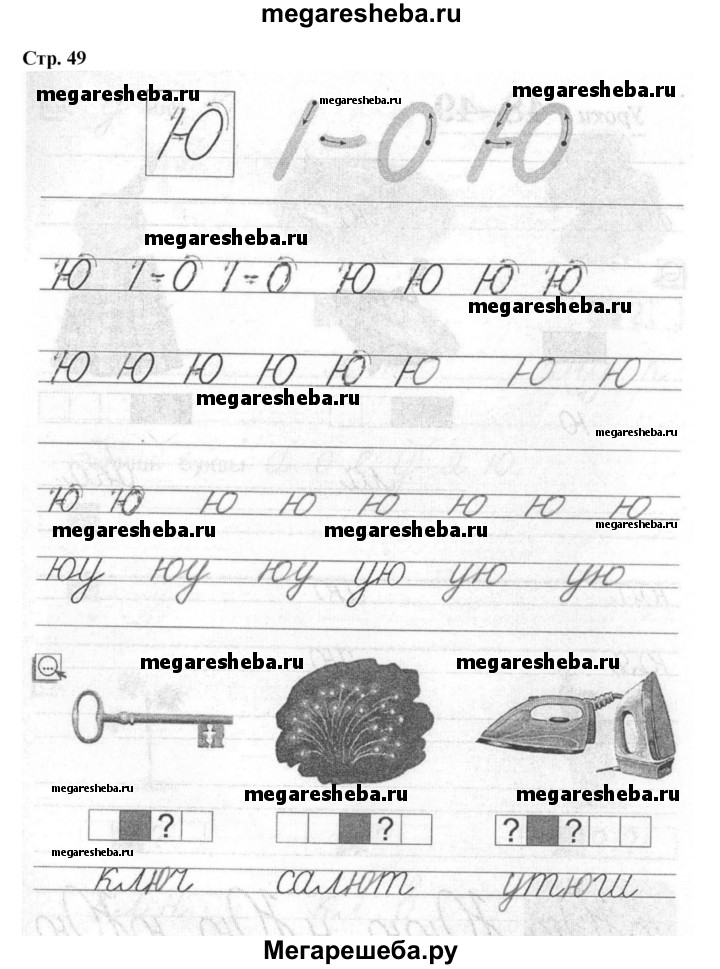 megaresheba.ru
Стр. 49
megaresheba.ru
megaresheba.ru
megaresheba.ru
Ю I - О Ю
megaresheba.ru
Ю I - О I - О Ю Ю Ю Ю
megaresheba.ru
Ю Ю Ю Ю Ю Ю Ю Ю
megaresheba.ru
megaresheba.ru
ю ю ю ю ю ю ю ю
megaresheba.ru megaresheba.ru megaresheba.ru
юу юу юу ую ую ую
megaresheba.ru megaresheba.ru
megaresheba.ru megaresheba.ru megaresheba.ru
? ? ? ?
megaresheba.ru
ключ салют утюги
Мегарешеба.ру